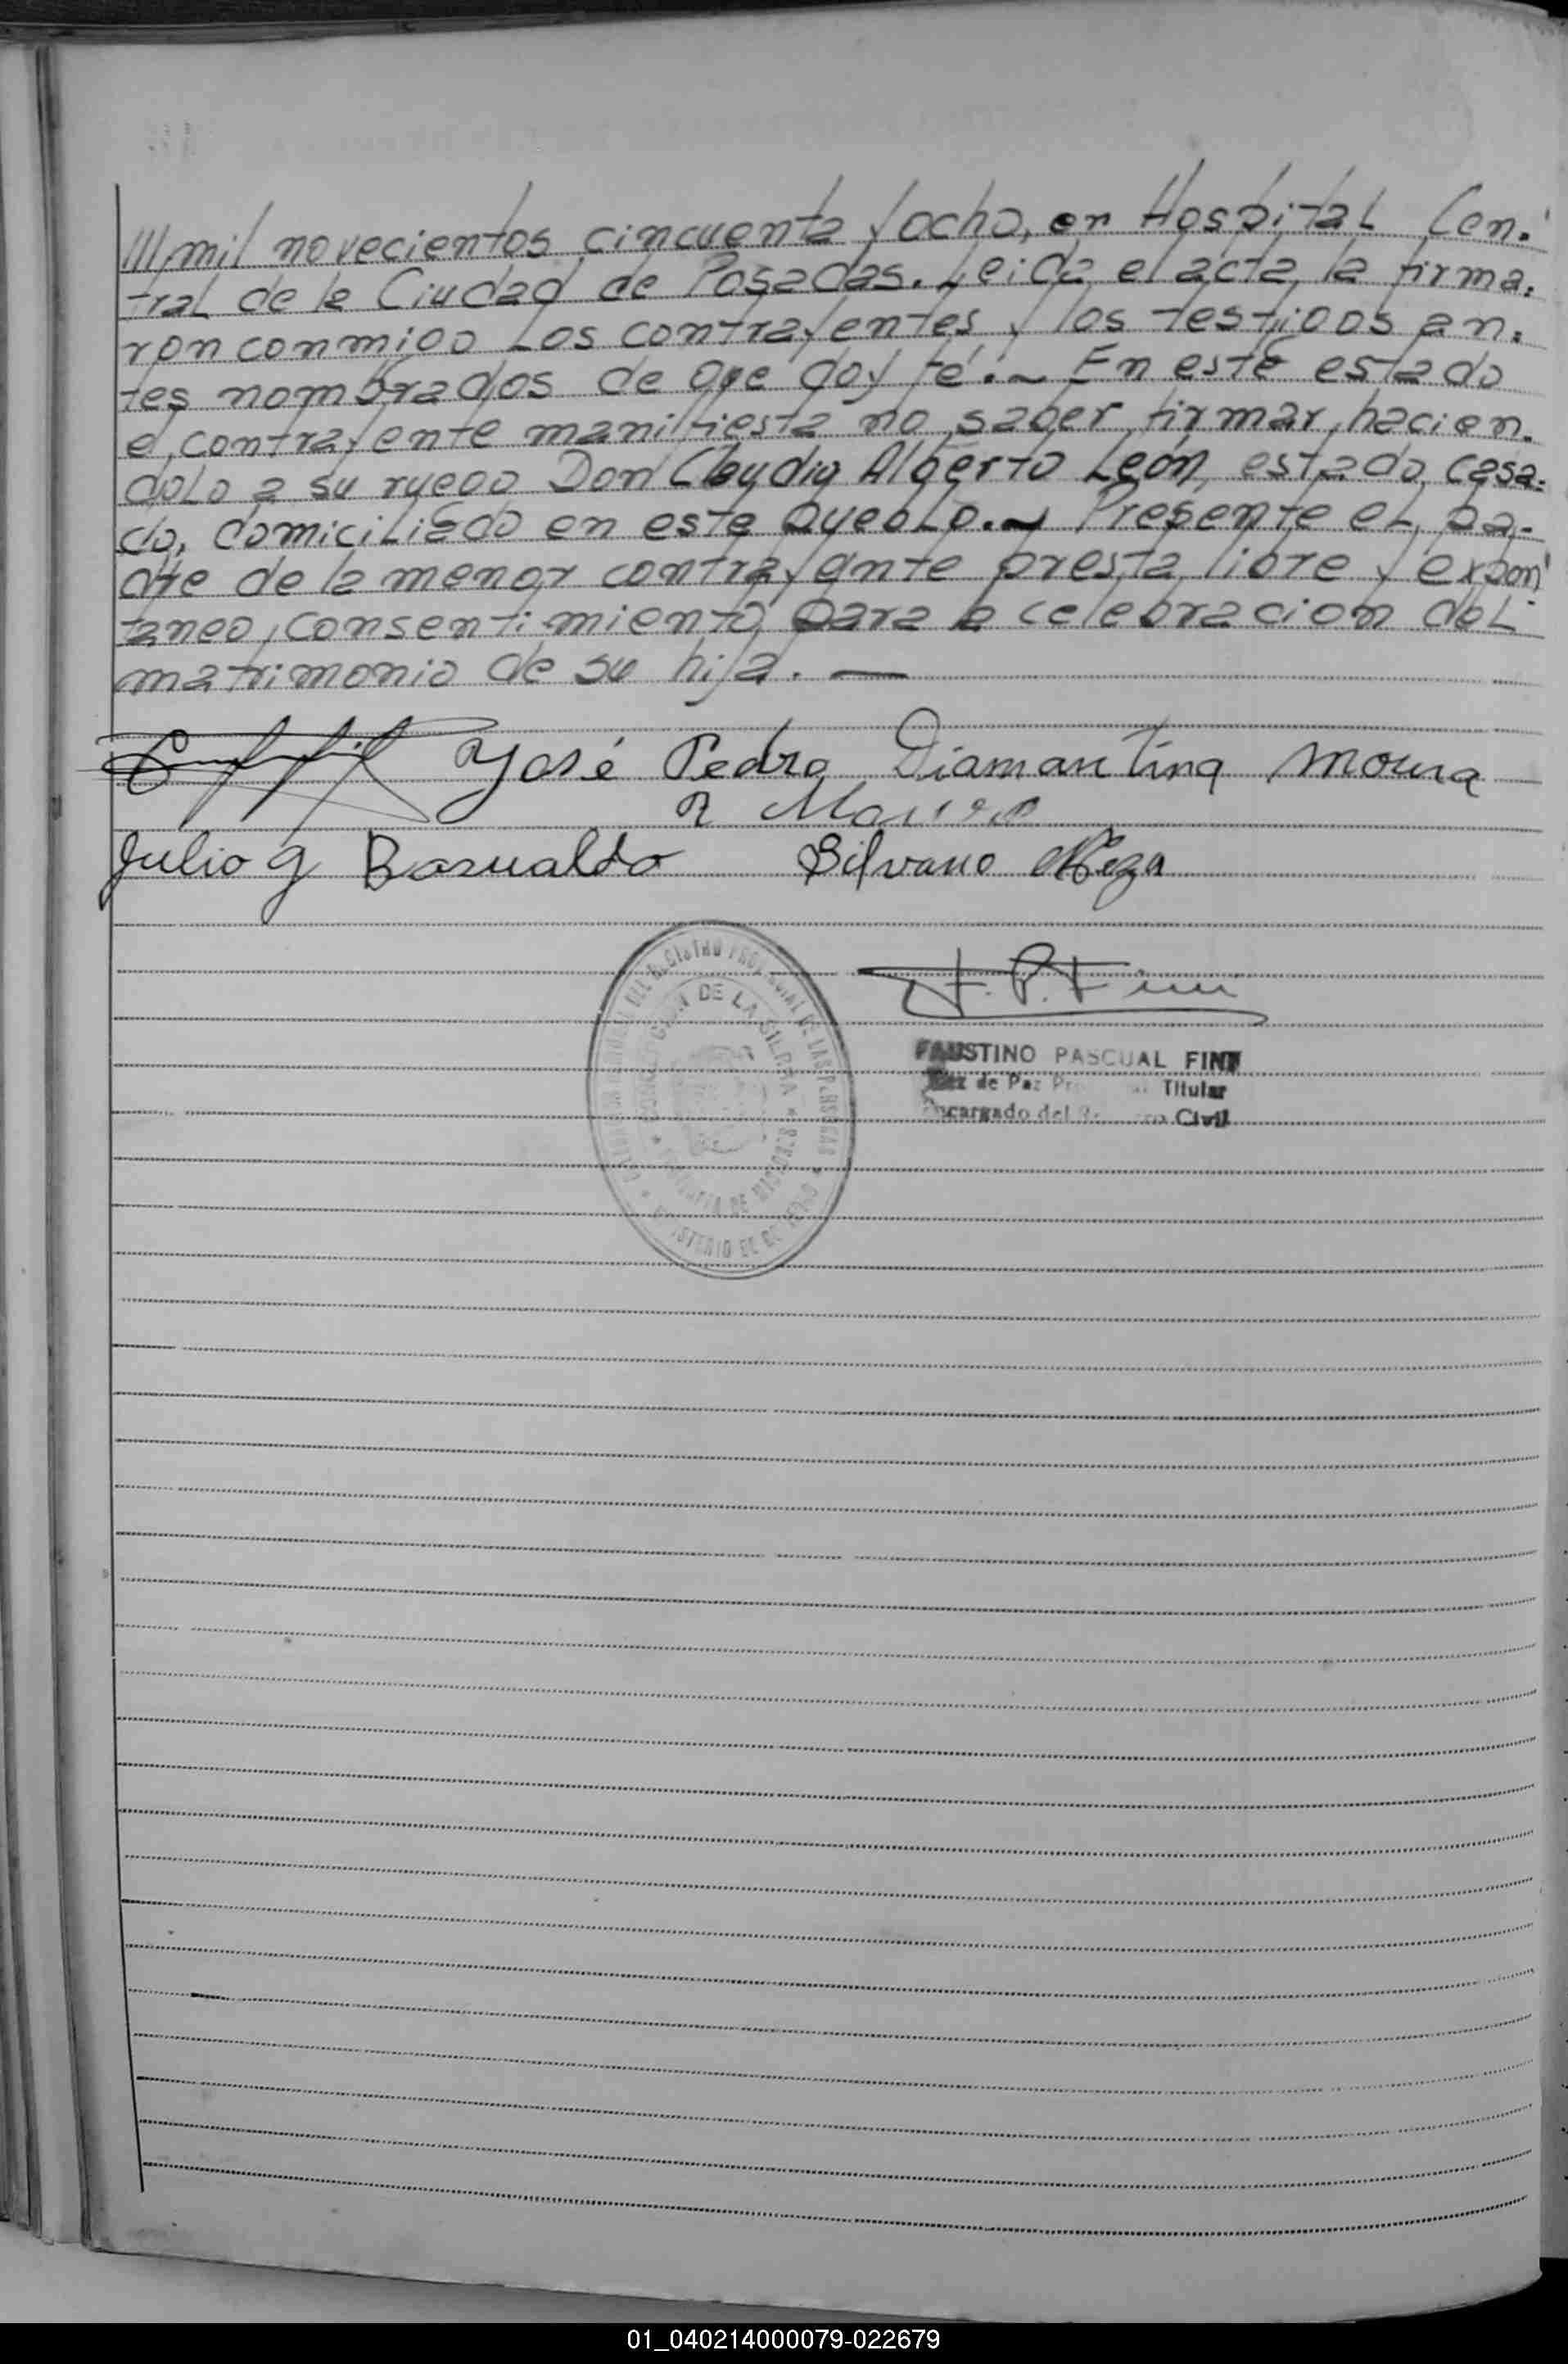 mil novecientos cincuenta y ocho, en Hospital Cen-
tral de la Ciudad de Posadas. Leida el acta, la firma-
ron conmigo Los contrayentes y los testigos an-
tes nombrados de que doy fé.~ En este estado
el contrayente manifiesta no saber firmar, hacien-
dolo a su ruego Don Claudio Alberto León, estado casa-
do, domiciliado en este pueblo.~ Presente el pa-
dre de la menor contrayente presta libre y expon
taneo, consentimiento para la celebracion del
matrimonio de su hija. —
José Pedro Diamantina Moura
Julio g Basualdo Silvano Meza
F. P. Fini
DE LA SIERRA
FAUSTINO PASCUAL FINI
Juez de Paz Titular
Encargado del Registro Civil
01_040214000079-022679